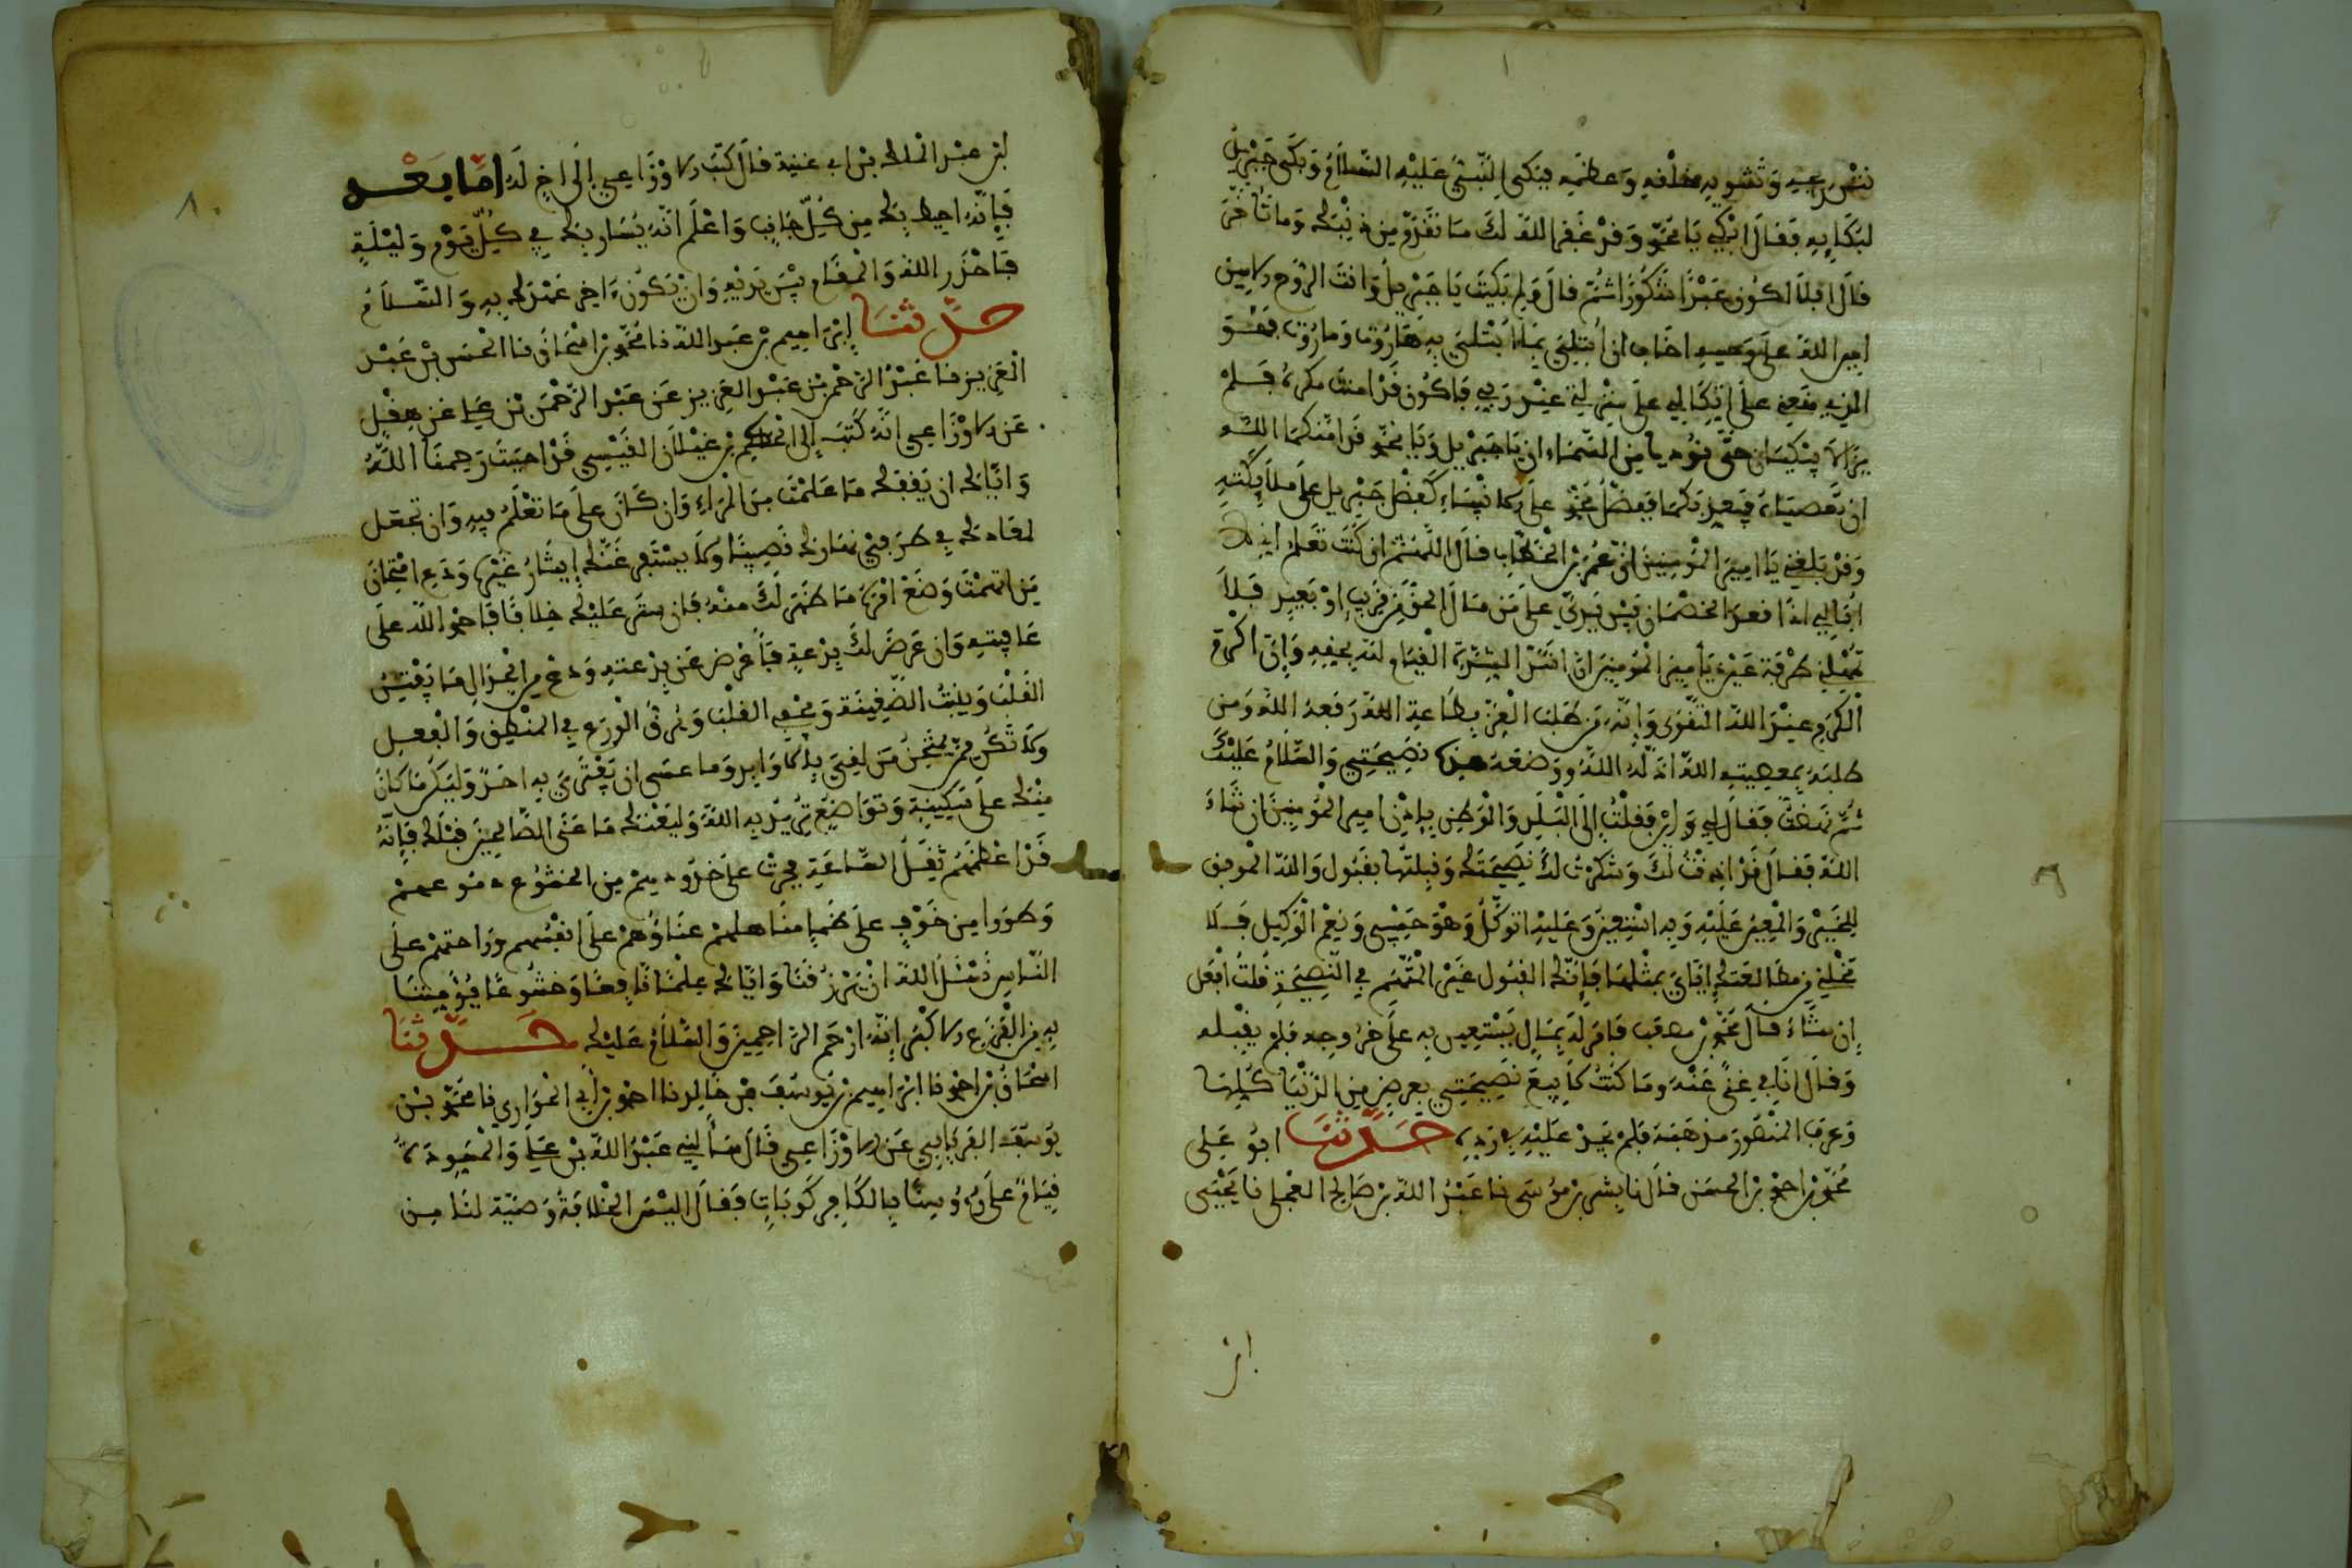 وتشويه خلقه وعظمه فبكى النبي عليه السلام وبكى جبريل
لبكايه فقال اتبكي يا محمد وقد غفر الله لك ما تقدم من ذنبك وما تاخر
قال افلا اكون عبدا شكورا ثم قال ولم بكيت يا جبريل وانت الروح الامين
امين الله على وحيه اخاف ان ابتلى بما ابتلي به هاروت وماروت فهو
الذي منعني على اتكالي على منزلتي عند ربي فاكون قد امنت مكره فلم
يزالا يبكيان حتى نوديا من السماء ان يا جبريل ويا محمد قد امنكما الله
ان تعصياه فيعذبكما ففضل محمد على الانبياء كفضل جبريل على ملايكته
وقد بلغني يا امير المومنين ان عمر بن الخطاب قال اللهم ان كنت تعلم اني لا
ابالي اذا قعد الخصمان بين يدي على من مال الحق من قريب او بعيد فلا
تمهلني طرفة عين يا مير المومنين ان اشد الشدة القيام لله بحقه وان اكرم
الكرم عند الله التقوى وانه من طلب العز بطاعة الله رفعه الله ومن
طلبه بمعصية الله اذله الله ووضعه هذه نصيحتي والسلام عليك
ثم نهضت فقال لي واين فقلت الى البلد والوطن باذن امير المومنين ان شاء
الله فقال قد اذنت لك وشكرت لك نصيحتك وقبلتها بقبول والله الموفق
للخير والمعين عليه وبه استعين وعليه اتوكل وهو حسبي ونعم الوكيل فلا
تخلني من مطالعتك اياي بمثلها فانك القبول غير المتهم في النصيحة قلت افعل
ان شاء قال محمد بن مصعب فامر له بمال يستعين به على خروجه فلم يقبله
وقال انا في غنى عنه وما كنت لابيع نصيحتي بعرض من الدنيا كلها
وعرف المنصور مذهبه فلم يجد عليه في رده حدثنا ابو علي
محمد بن احمد بن الحسن قال نا بشر بن موسى نا عبد الله بن صالح العجلي نا يحيى
از
٨٠
بن عبد الملك بن ابي غنية قال كتب الاوزاعي الى اخ له اما بعد
فانه احيط بك من كل جانب واعلم انه يسار بك في كل يوم وليلة
فاحذر الله والمقام بين يديه وان يكون اخر عهدك به والسلام
حدثنا ابراهيم بن عبد الله نا محمد بن اسحاق نا الحسن بن عبد
العزيز نا عبد الرحمن بن عبد العزيز عن عبد الرحمن بن علي عن هقل
عن الاوزاعي انه كتب الى الحكم بن غيلان القيسي قد احببت رحمنا الله
واياك ان يفقك ما علمت من المراء وان كان على ما تعلم فيه وان تجعل
لمعادك في طرفي نهارك نصيبا ولا يستفرغنك ايثار غيره ودع امتحان
من اتهمت وضع امره ما ظهر لك منه فان ستر عليك خلافا فاحمد الله على
عافيته وان عرض لك بدعة فاعرض عن بدعته ودع من الجدال ما يفتن
القلب وينبت الضغينة ويجفي القلب ويرق الورع في المنطق والفعل
ولا تكن ممن يمتحن من لقي بالاوابد وما عسى ان يفتري به احد وليكن ما كان
منك على سكينة وتواضع تريد به الله وليعنك ما عنى الصالحين قبلك فانه
قد اعظمهم ثقل الساعة فجرت على خدودهم من الخشوع دموعهم
وطووا من خوف على ظما مناهلهم عناؤهم على انفسهم وراحتهم على
الناس نسئل الله ان يرزقنا واياك علما نافعا وخشوعا يؤمننا
به من الفزع الاكبر انه ارحم الراحمين والسلام عليك حدثنا
اسحاق بن احمد نا ابراهيم بن يوسف بن خالد نا احمد بن ابي الحواري نا محمد بن
يوسف الفريابي عن الاوزاعي قال سالني عبد الله بن علي والمسودة
قيام على رؤوسنا بالكافركوبات فقال اليس الخلافة وصية لنا من